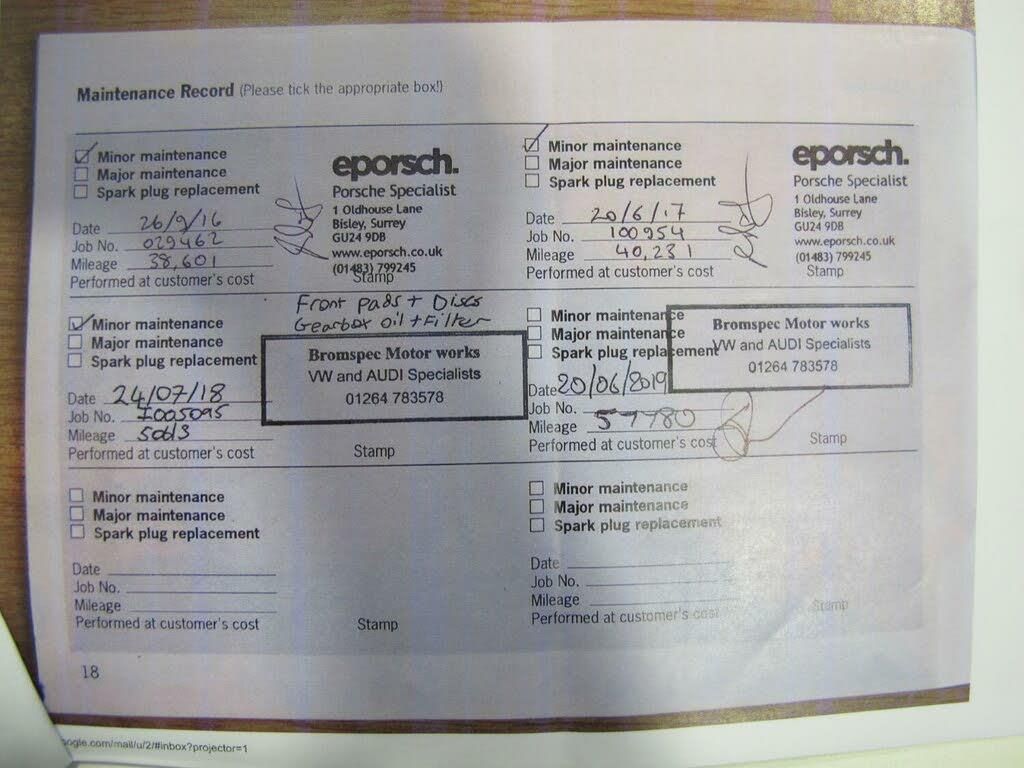 Maintenance Record (Please tick the appropriate box!)
Minor maintenance
Major maintenance
Spark plug replacement
Date 26/9/16
Job No. 029462
Mileage 38,601
Performed at customer's cost
eporsch.
Porsche Specialist
1 Oldhouse Lane
Bisley, Surrey
GU24 9DB
www.eporsch.co.uk
(01483) 799245
Stamp
Minor maintenance
Major maintenance
Spark plug replacement
Date 20/6/17
Job No. 100954
Mileage 40,231
Performed at customer's cost
eporsch.
Porsche Specialist
1 Oldhouse Lane
Bisley, Surrey
GU24 9DB
www.eporsch.co.uk
(01483) 799245
Stamp
Minor maintenance
Major maintenance
Spark plug replacement
Date 24/07/18
Job No. I005095
Mileage 50613
Performed at customer's cost
Front pads + Discs
Gearbox oil + Filter
Bromspec Motor works
VW and AUDI Specialists
01264 783578
Stamp
Minor maintenance
Major maintenance
Spark plug replacement
Date 20/06/2019
Job No.
Mileage 57780
Performed at customer's cost
Bromspec Motor works
VW and AUDI Specialists
01264 783578
Stamp
Minor maintenance
Major maintenance
Spark plug replacement
Date
Job No.
Mileage
Performed at customer's cost
Stamp
Minor maintenance
Major maintenance
Spark plug replacement
Date
Job No.
Mileage
Performed at customer's cost
Stamp
18
oogle.com/mail/u/2/#inbox?projector=1